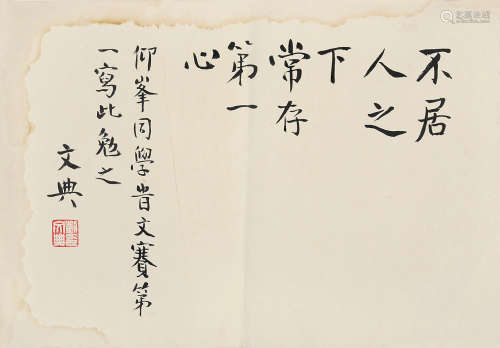 不居
人之
下
常存
第一
心
仰峯同學昔文賽第
一寫此勉之
文典